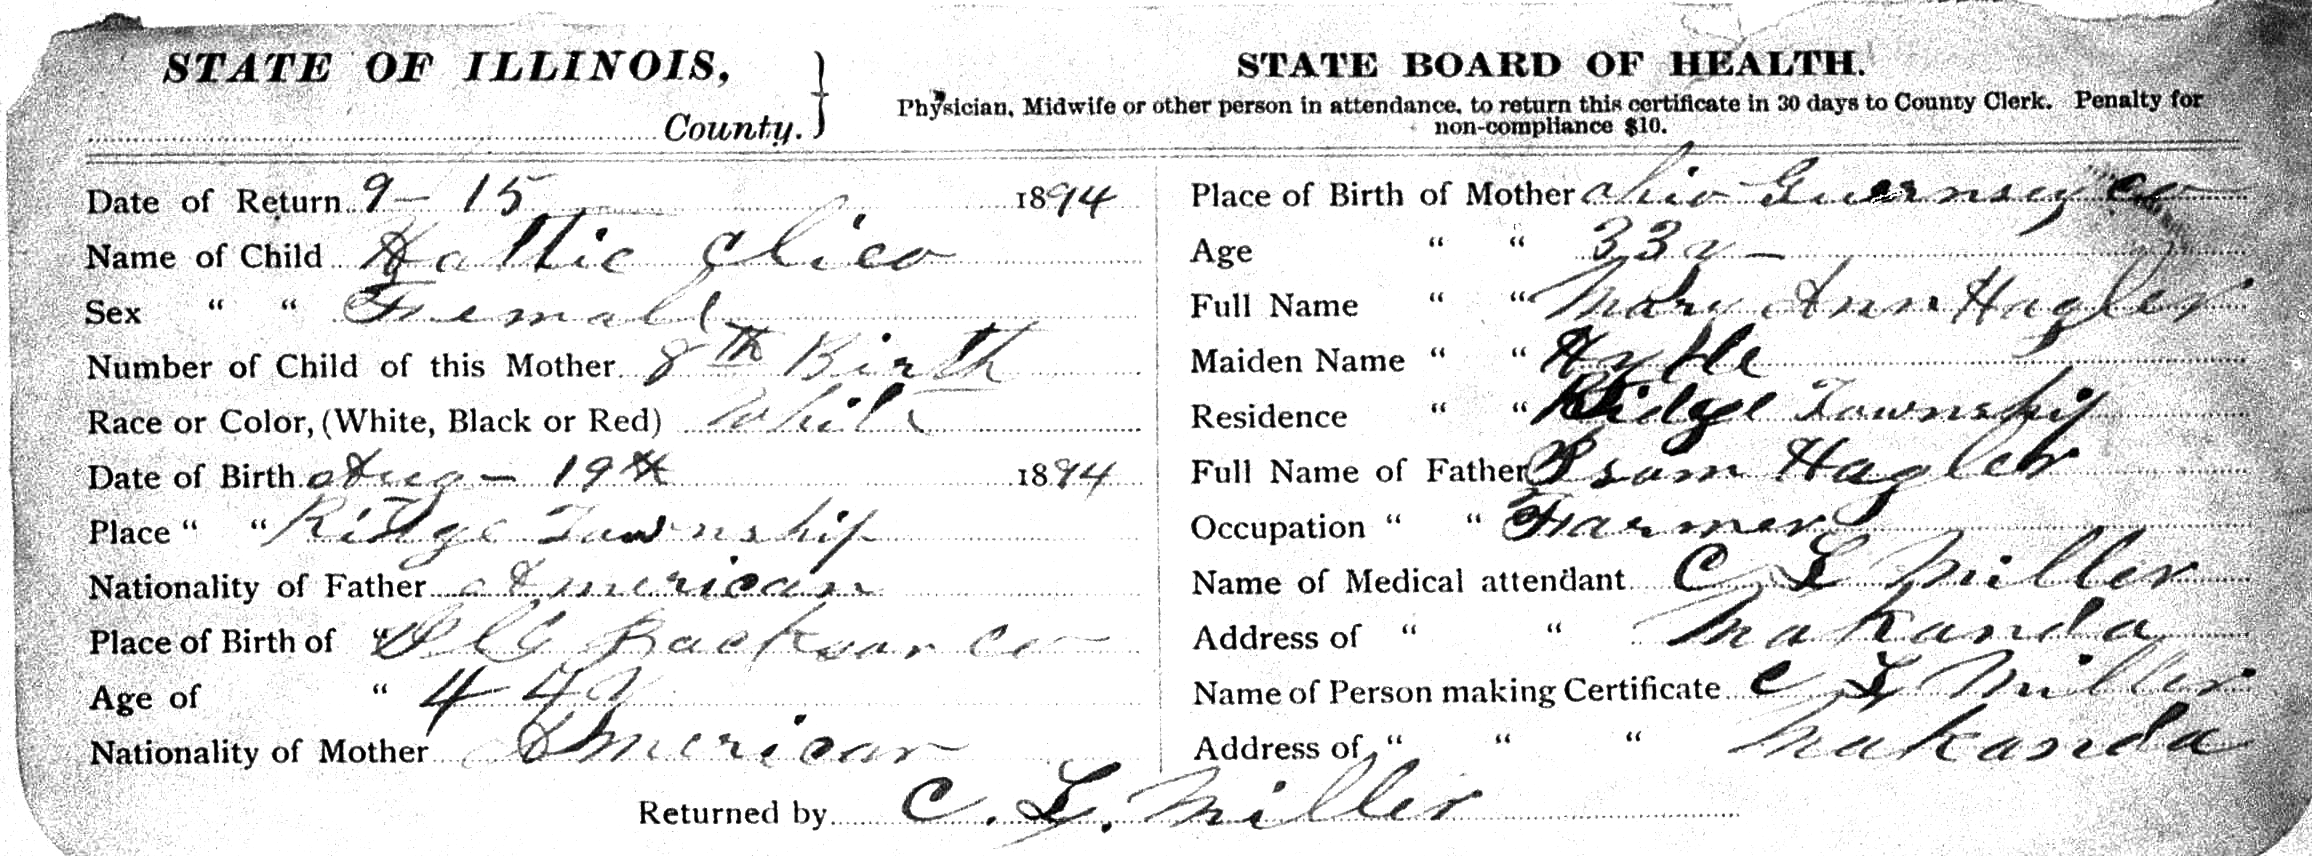 STATE OF ILLINOIS,
County.
STATE BOARD OF HEALTH.
Physician, Midwife or other person in attendance, to return this certificate in 30 days to County Clerk. Penalty for
non-compliance $10.
Date of Return 9-15 1894
Name of Child Hattie Clico
Sex " " Female
Number of Child of this Mother 8th Birth
Race or Color, (White, Black or Red) White
Date of Birth Aug - 19th 1894
Place " " Ridge Township
Nationality of Father American
Place of Birth of " Ills Jackson Co
Age of " 44 y
Nationality of Mother American
Place of Birth of Mother Ohio Guernsey Co
Age " " 33 y -
Full Name " " Mary Ann Hagler
Maiden Name " " Hytle
Residence " " Ridge Township
Full Name of Father Isom Hagler
Occupation " " Farmer
Name of Medical attendant C L Miller
Address of " " Makanda
Name of Person making Certificate C L Miller
Address of " " " Makanda
Returned by C. L. Miller